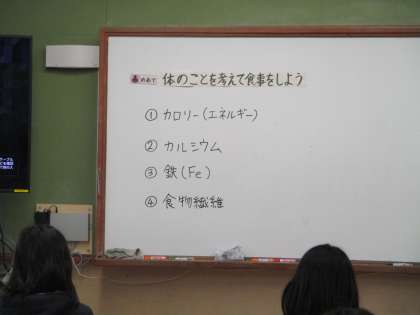 めあて 体のことを考えて食事をしよう
① カロリー(エネルギー)
② カルシウム
③ 鉄(Fe)
④ 食物繊維